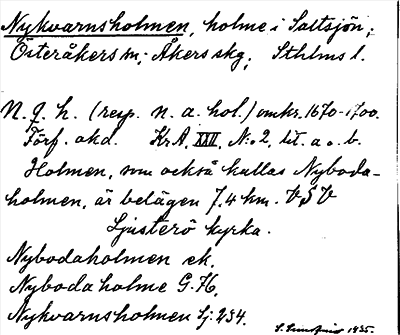 Nykvarnsholmen, holme i Saltsjön;
Österåkers sn; Åkers skg; Sthlms l.
N. q. h. (resp. n. a. hol.) omkr. 1670-1700.
Förf. akd. Kr.A. XXII, N:o 2, lit. a o. b.
Holmen, som också kallas Nyboda-
holmen, är belägen 7,4 km. VSV
Ljusterö kyrka.
Nybodaholmen ek.
Nyboda holme G. 76.
Nykvarnsholmen Sj: 234.
1935.